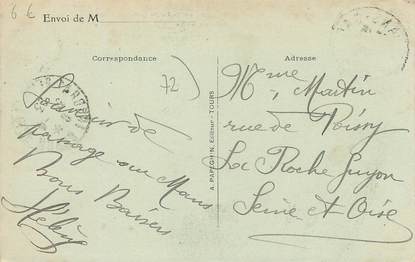 6 €
Envoi de M
Correspondance
Adresse
72
Souvenir de
passage au Mans
Bons Baisers
Hélène
A. PAPEGHIN, Editeur - TOURS
Mme Martin
rue de Poissy
La Roche Guyon
Seine et Oise